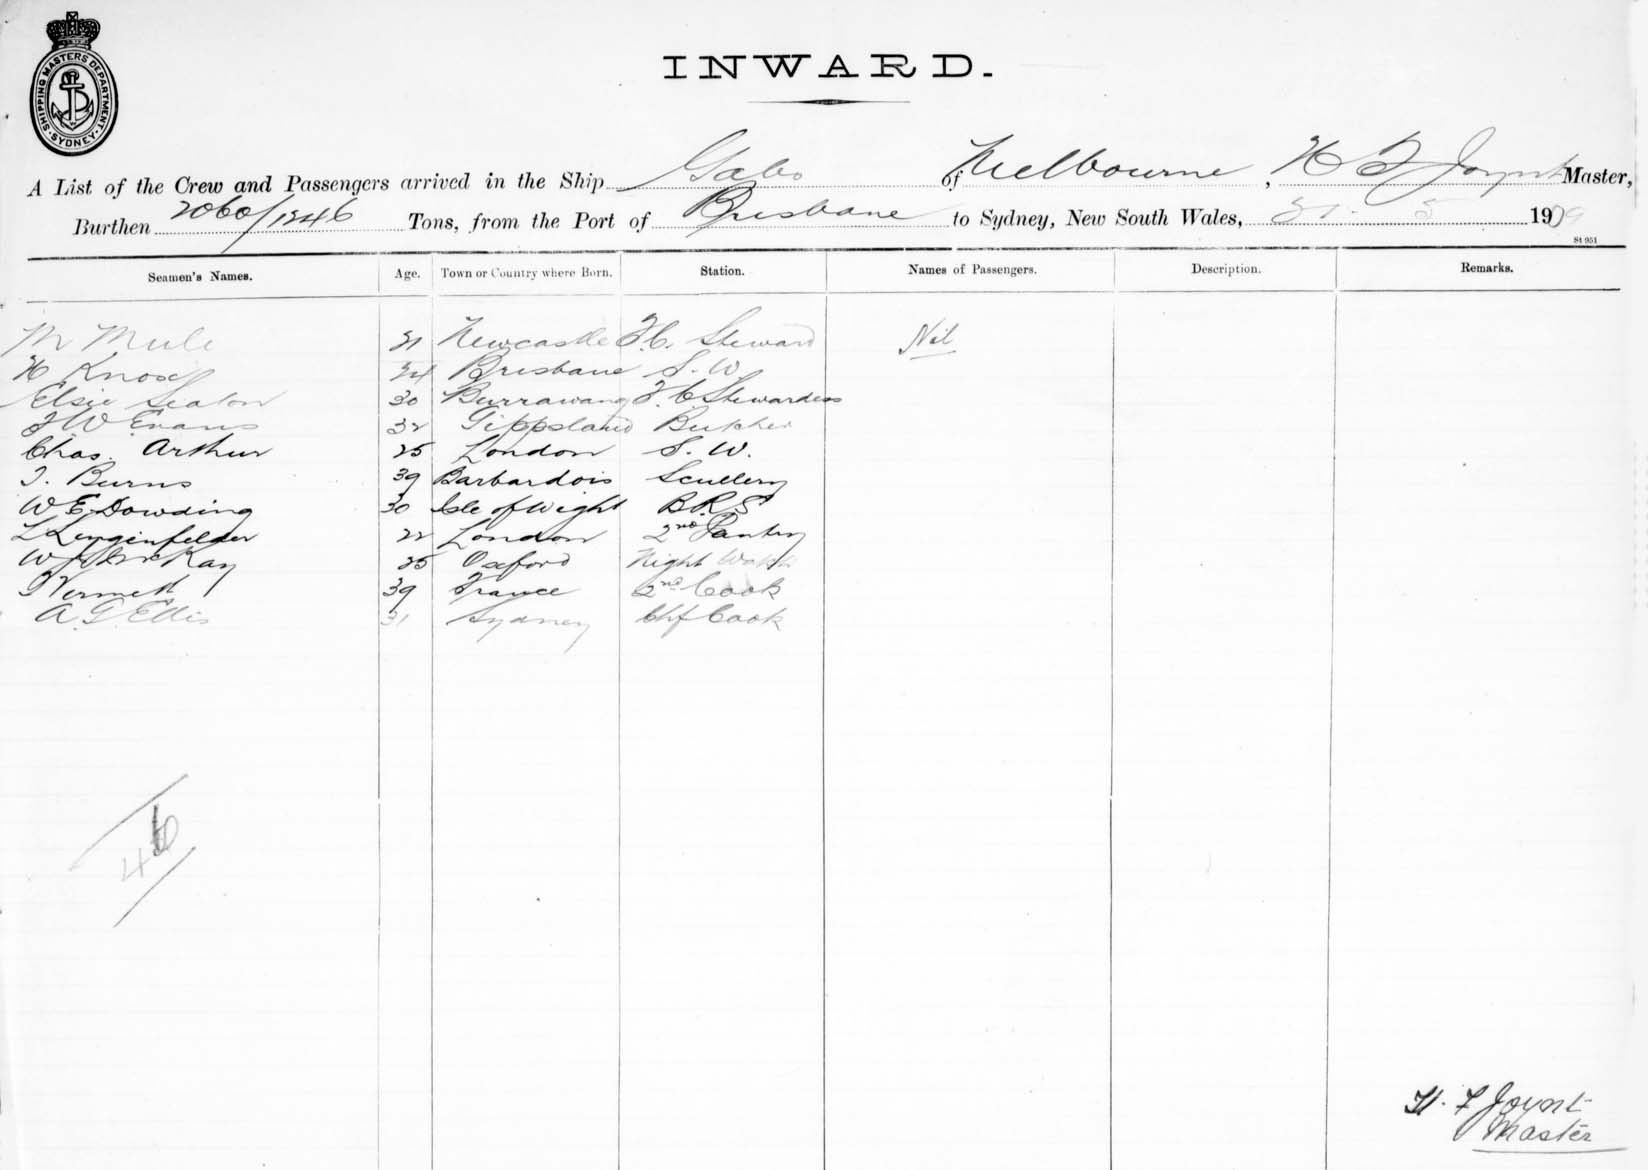 SHIPPING MASTERS DEPARTMENT
SYDNEY
INWARD.
A List of the Crew and Passengers arrived in the Ship Gabo of Melbourne, H F Joynt Master,
Burthen 2060/1246 Tons, from the Port of Brisbane to Sydney, New South Wales, 31. 5 1909
St 951
Seamen's Names. Age. Town or Country where Born. Station. Names of Passengers. Description. Remarks.
M 31 Newcastle F.C. Steward Nil
H Knox 34 Brisbane S. W.
Elsie Seaton 30 Burrawang F. C Stewardess
F W Evans 32 Gippsland Butcher
Chas. Arthur 25 London S. W.
T. Burns 39 Barbardois Scullery
W E Dowding 30 Isle of Wight B.R.S
L Leyginfelder 22 London 2nd Pantry
W McKay 25 Oxford Night Watch
39 France 2nd Cook
A. G. Ellis 31 Sydney Chf Cook
H. F Joynt
Master